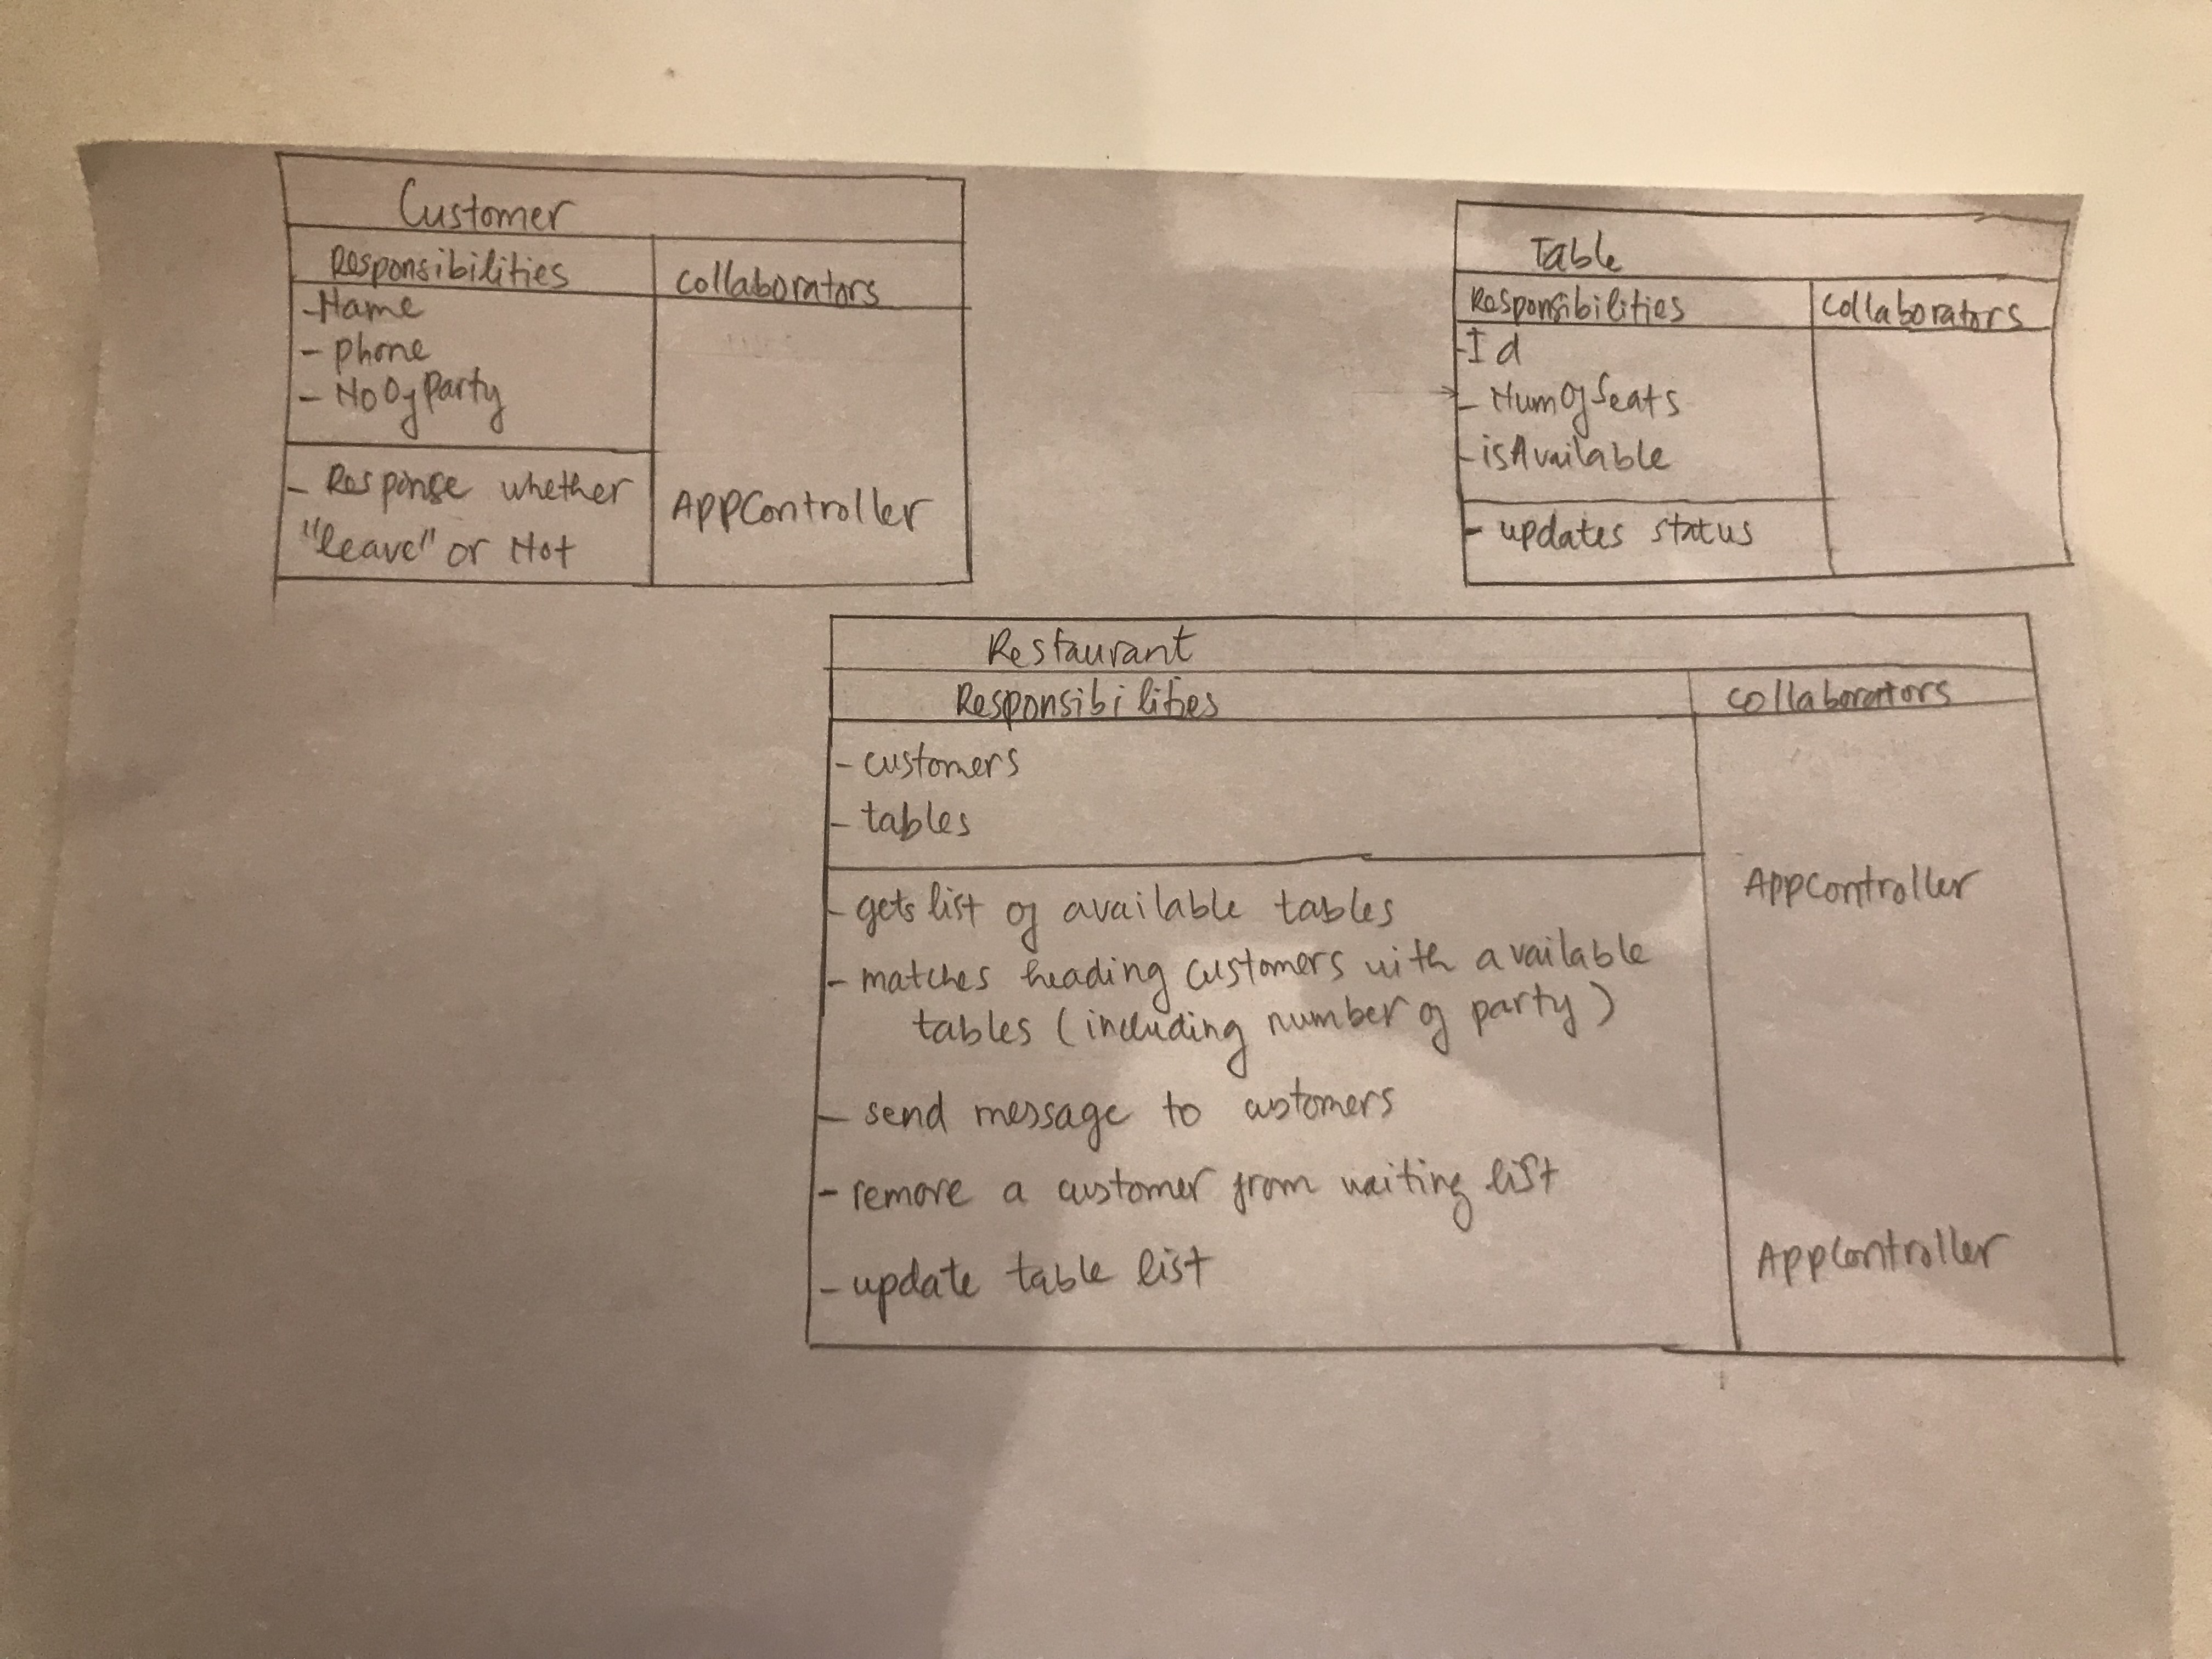 Customer
Responsibilities
Collaborators
- Name
- phone
- NoOfParty
- Response whether
"leave" or Not
AppController
Table
Responsibilities
Collaborators
- Id
- NumOfSeats
- isAvailable
- updates status
Restaurant
Responsibilities
Collaborators
- customers
- tables
- gets list of available tables
AppController
- matches heading customers with available
tables (including number of party)
- send message to customers
- remove a customer from waiting list
- update table list
AppController